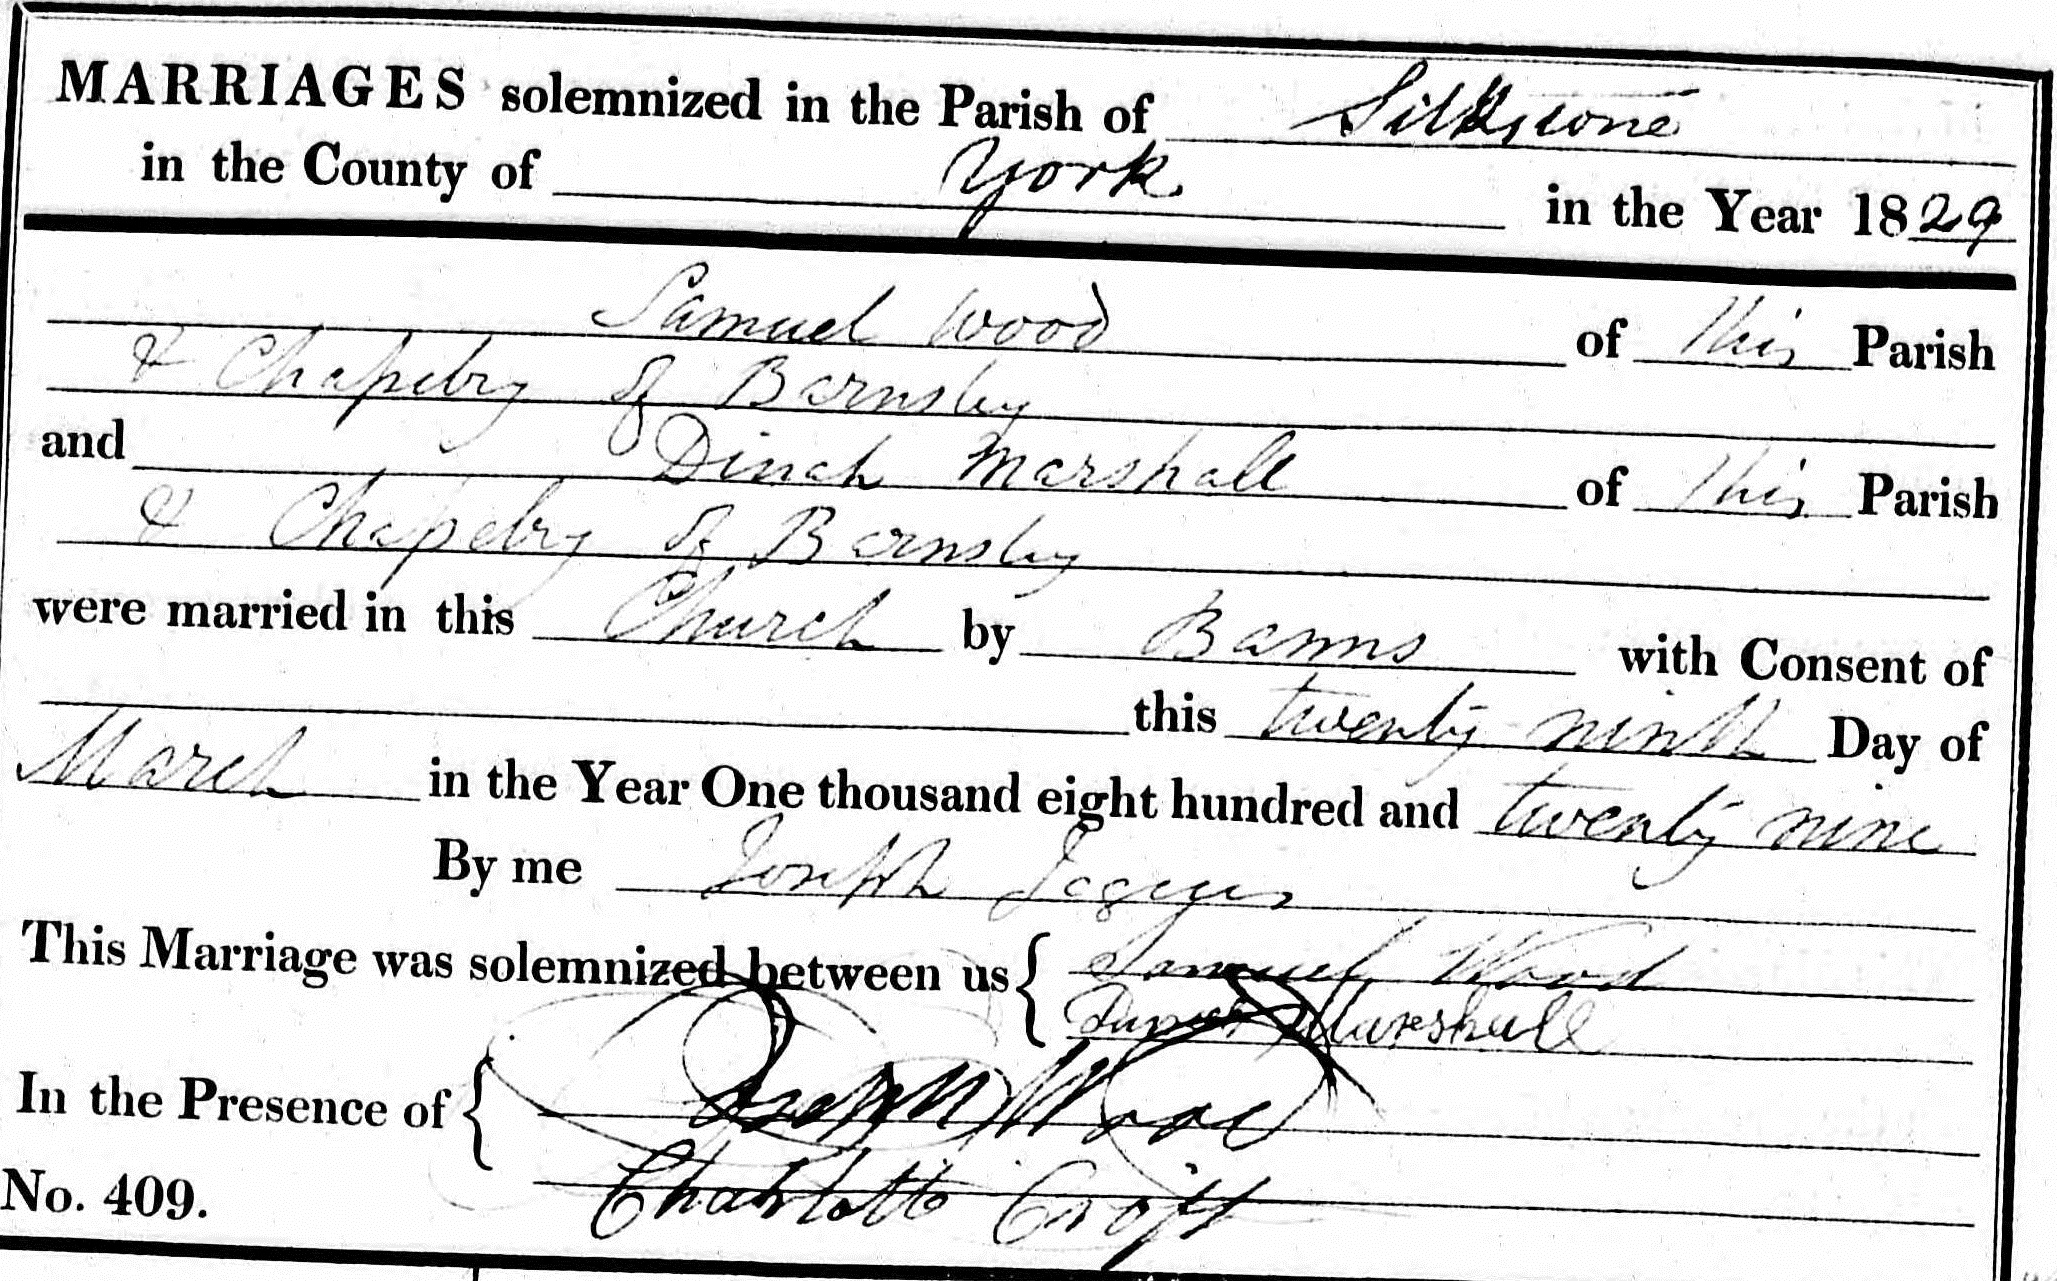 MARRIAGES solemnized in the Parish of Silkstone
in the County of York in the Year 1829
Samuel Wood of this Parish
& Chapelry of Barnsley
and Dinah Marshall of this Parish
& Chapelry of Barnsley
were married in this Church by Banns with Consent of
this twenty ninth Day of
March in the Year One thousand eight hundred and twenty nine
By me Joseph
This Marriage was solemnized between us { Samuel Wood
Marshall
In the Presence of { Joseph Wood
Charlotte Croft
No. 409.